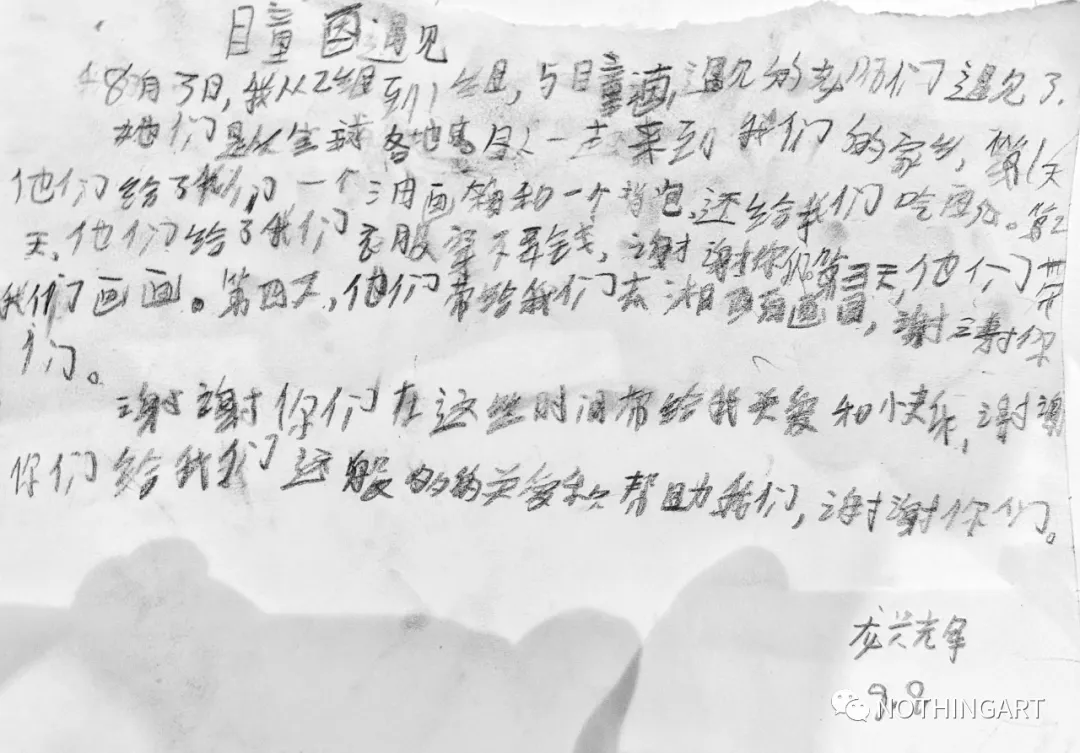 瞳画遇见
8月3日，我从2组到1组，与瞳画遇见的老师们遇见了。
她们是从全球各地高 一起来到我们的家乡，第1天
他们给了我们一个油画箱和一个背包，还给我们吃 。第2
天，他们给了我们衣服穿不要钱，谢谢你们。第三天，他们带
我们画画。第四天，他们带给我们去湘西 ，谢谢你
们。
谢谢你们在这些时间带给我关爱和快乐，谢谢
你们给我们这般多的关爱和帮助我们，谢谢你们。
龙兴先军
9.2
NOTHINGART